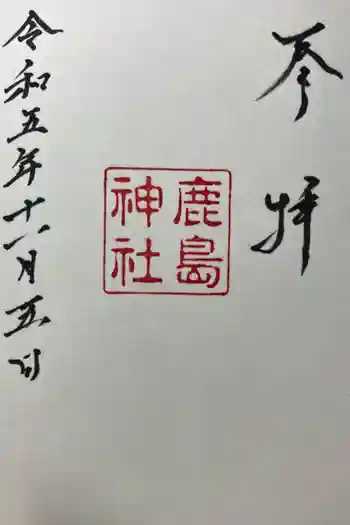 奉拝
鹿島
神社
令和五年十八月五日